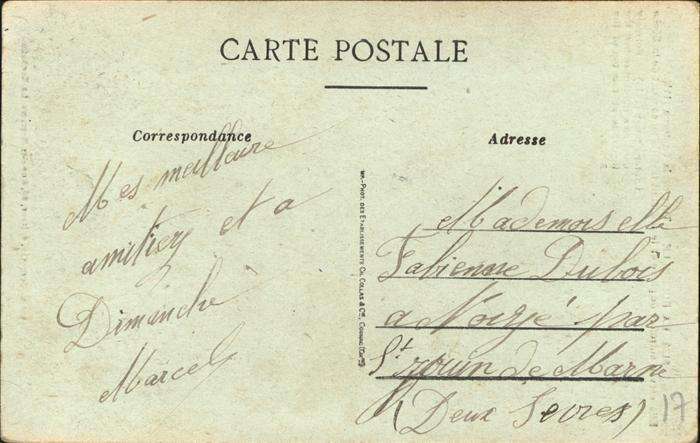 CARTE POSTALE
Correspondance
Mes meillaure
amitiey et a
Dimanche
Marcel
IMP.-PHOT. DES ETABLISSEMENTS CH. COLLAS & Cie, COGNAC
Adresse
Mademoiselle
Fabienne Dubois
a Noizé par
St Jouin de Marne
(Deux Sevres)
17